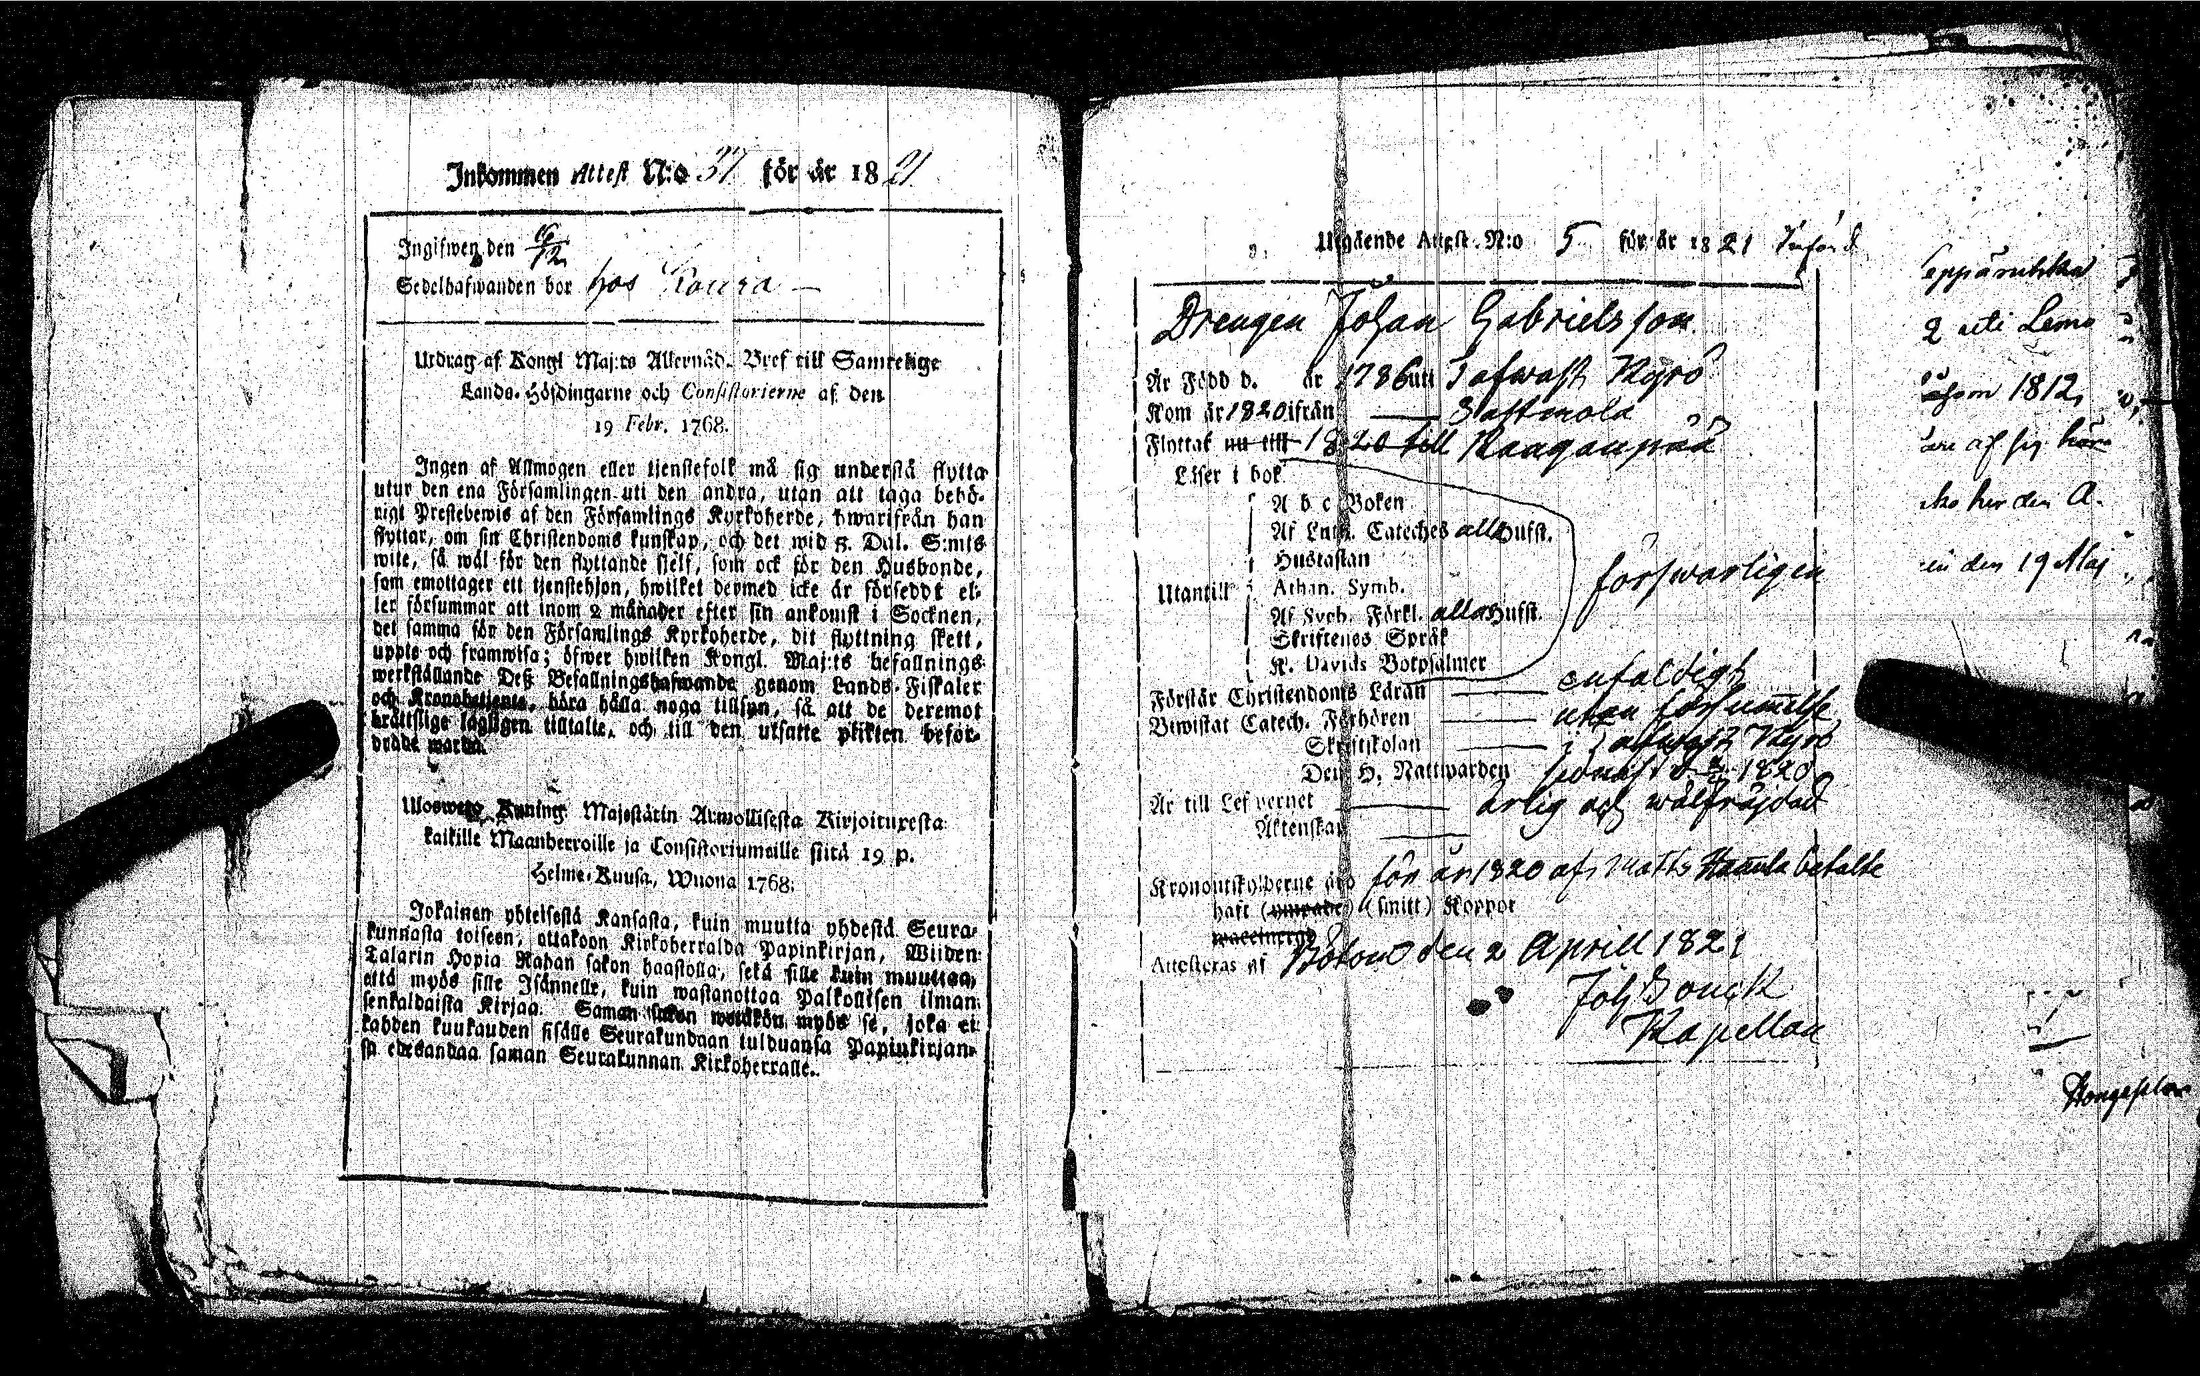 Inkommen Attest N:o 37 för år 1821
Ingifwen den 16/12
Sedelhafwanden bor hos Koura
Utdrag af Kongl Maj:ts Allernåd. Bref till Samtelige
Lands-Höfdingarne och Consistorierne af den
19 Febr. 1768.
Ingen af Allmogen eller tjenstefolk må sig understå flytta
utur den ena Församlingen uti den andra, utan att taga behö-
rigt Prestebewis af den Församlings Kyrkoherde, hwarifrån han
flyttar, om sin Christendoms kunskap, och det wid 5. Dal. S:mts
wite, så wäl för den flyttande sjelf, som ock för den Husbonde,
som emottager ett tjenstehjon, hwilket dermed icke är förseddt el-
ler försummar att inom 2 månader efter sin ankomst i Socknen,
det samma för den Församlings Kyrkoherde, dit flyttning skett,
uppte och framwisa; öfwer hwilken Kongl. Maj:ts befallnings
werkställande Deß Befallningshafwande genom Lands-Fiskaler
och Kronobetjente, böra hålla noga tillsyn, så att de deremot
brättslige lagligen tilltalte, och till den utsatte plikten beför-
drade warda.
Uloswetty Kuning: Majestätin Armollisesta Kirjoituxesta
kaikille Maanherroille ja Consistoriumeille siitä 19 p.
Helme-Kuusa, Wuona 1768.
Jokainen yhteisestä Kansasta, kuin muutta yhdestä Seura-
kunnasta toiseen, ottakoon Kirkoherralda Papinkirjan, Wiiden
Talarin Hopia Rahan sakon haastolla, sekä sille kuin muuttaa,
että myös sille Isännelle, kuin wastanottaa Palkollisen ilman
senkaldaista Kirjaa. Saman sakon wetäkön myös se, joka ei
kahden kuukauden sisälle Seurakundaan tulduansa Papinkirjan-
sa edesandaa saman Seurakunnan Kirkoherralle.
Utgående Attest. N:o 5 för år 1821 Införd
Drengen Johan Gabrielsson
Är Född d. år 1786 uti Tafwast Kyro
Kom år 1820 ifrån Sastmola
Flyttat nu till 1820 till Kangaupää
Läser i bok
A b c Boken
Af Luth. Cateches alla Hufst.
Hustaflan
Utantill Athan. Symb.
Af Sveb. Förkl. alla Hufst.
Skriftenes Språk
K. Davids Botpsalmer
försvarligen
Förstår Christendoms Läran enfaldigt
Bewistat Catech. Förhören utan försummelse
Skriftskolan i Tafwast Kyro
Den H. Nattwarden sednast d. 1820
Är till Lefvernet ärlig och wälfräjdad
Äktenskap
Kronoutskylderne äro för år 1820 af Matts betalte
haft (smitt) Koppor
Attesteras af Bötom den 2 Aprill 1821
Joh Bonck
Kapellan
2 uti Lemo
1812
den 19 Maj